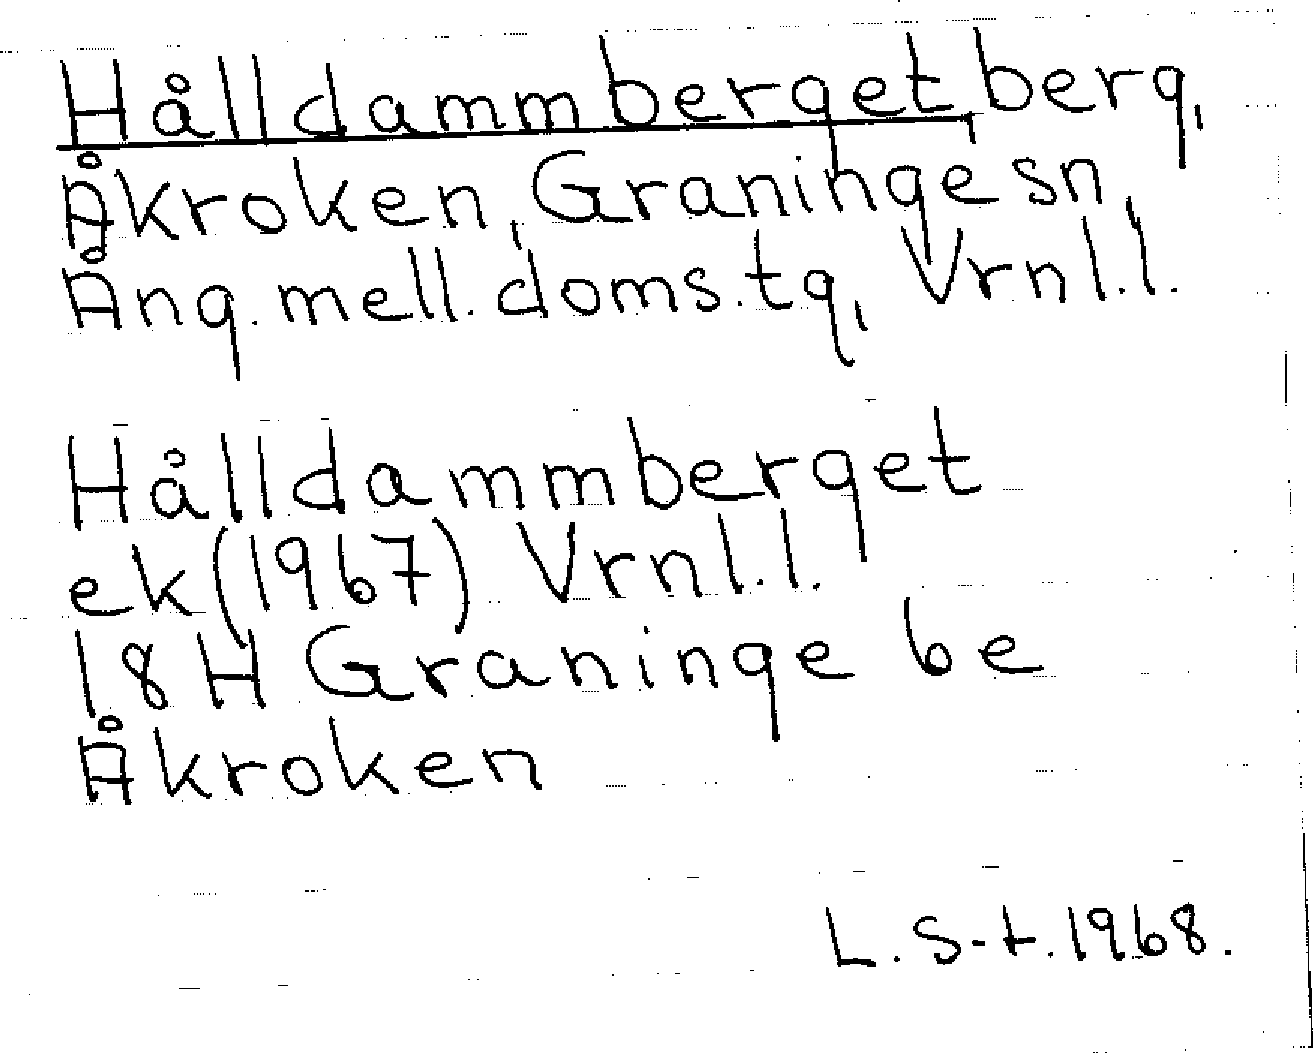 Hålldammberget, berg,
Åkroken, Graninge sn,
Ång. mell. doms. tg, Vrnl.l.
Hålldammberget
ek (1967) Vrnl.l.
18H Graninge be
Åkroken
L. S-t. 1968.